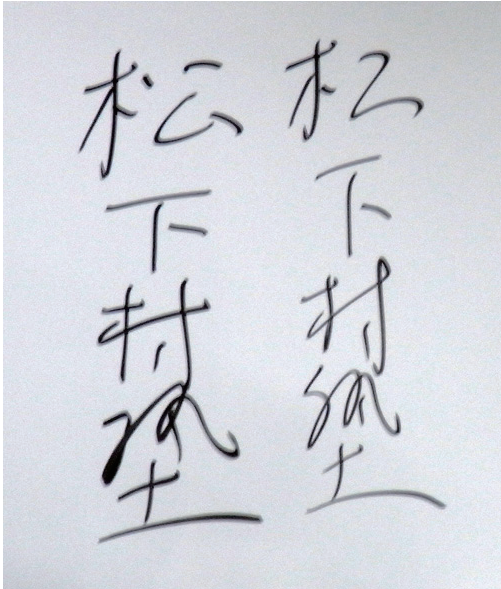 松下村塾
松下村塾